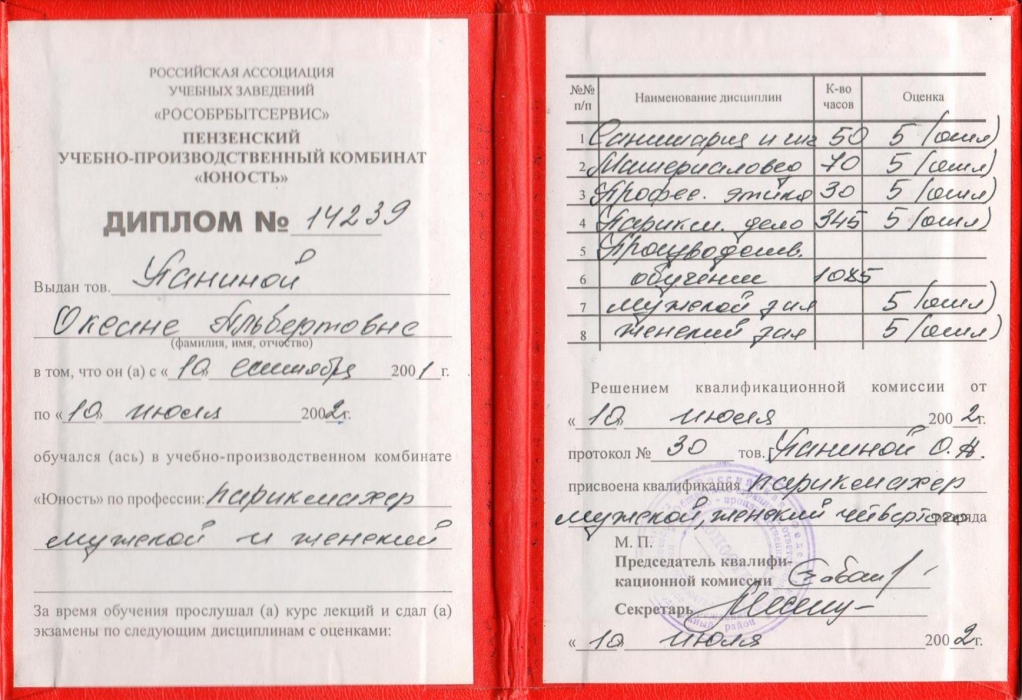 РОССИЙСКАЯ АССОЦИАЦИЯ
УЧЕБНЫХ ЗАВЕДЕНИЙ
«РОСОБРБЫТСЕРВИС»
ПЕНЗЕНСКИЙ
УЧЕБНО-ПРОИЗВОДСТВЕННЫЙ КОМБИНАТ
«ЮНОСТЬ»
ДИПЛОМ № 14239
Выдан тов. Паниной
Оксане Альбертовне
(фамилия, имя, отчество)
в том, что он (а) с « 10 » сентября 2001 г.
по « 10 » июля 2002 г.
обучался (ась) в учебно-производственном комбинате
«Юность» по профессии: парикмахер
мужской и женский
За время обучения прослушал (а) курс лекций и сдал (а)
экзамены по следующим дисциплинам с оценками:
№№ п/п Наименование дисциплин К-во часов Оценка
1 Санитария и ги 50 5 (отл)
2 Материаловед 70 5 (отл)
3 Профес. этика 30 5 (отл)
4 Парикм. дело 345 5 (отл)
5 Производств.
6 обучение 1085
7 мужской зал 5 (отл)
8 женский зал 5 (отл)
Решением квалификационной комиссии от
« 10 » июля 2002 г.
протокол № 30 тов. Паниной О.А.
присвоена квалификация парикмахер
мужской, женский четвертого разряда
М. П.
Председатель квалифи-
кационной комиссии
Секретарь
« 10 » июля 2002 г.